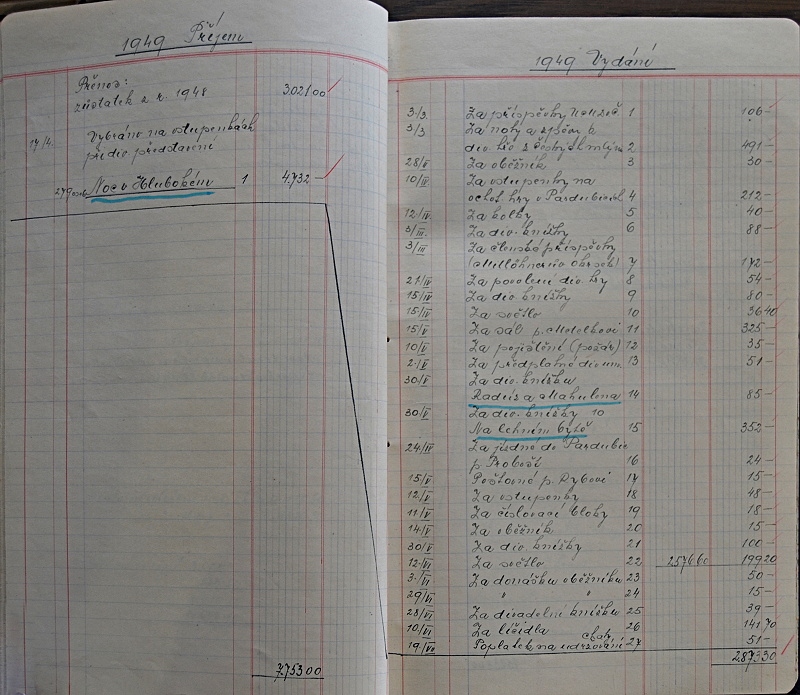 1949 Příjem
Přenos:
zůstatek z r. 1948 302100
17/4. Vybráno na vstupenkách
při div. představení
Noc v Hlubokém 1 4.732 —
7.75300
1949 Vydání
3/3. Za příspěvky 1 106 —
3/3 Za nohy a
div. 2 491 —
28/II Za oběžník 3 30 —
10/IV Za vstupenky na
ochot. hry v Pardubicích 4 212 —
12/IV. Za kolky 5 40 —
3/III. Za div. knížky 6 88 —
3/III Za členské příspěvky
7 172 —
21/IV Za povolení div. hry 8 54 —
15/IV Za div. knížky 9 80 —
15/IV Za světlo 10 3640
15/V Za sál p. 11 325 —
10/V Za pojištění (požár) 12 35 —
2/V Za předplatné 13 51 —
30/V Za div. knížku
Radúz a Mahulena 14 85 —
30/V Za div. knížky 10
Na letním bytě 15 352 —
24/IV Za jízdné do Pardubic
p. Probošt 16 24 —
15/V Poštovné p. Dybovi 17 15 —
12/V Za vstupenky 18 48 —
11/V Za číslovací bloky 19 18 —
14/V Za oběžník 20 15 —
30/V Za div. knížky 21 100 —
12/VI Za světlo 22 257660 19920
3/VI Za donášku oběžníku 23 50 —
29/VI " " 24 15 —
28/VI Za divadelní knížku 25 39 —
10/VI Za líčidla 26 14170
19/VII Poplatek na udržování 27 51 —
287330